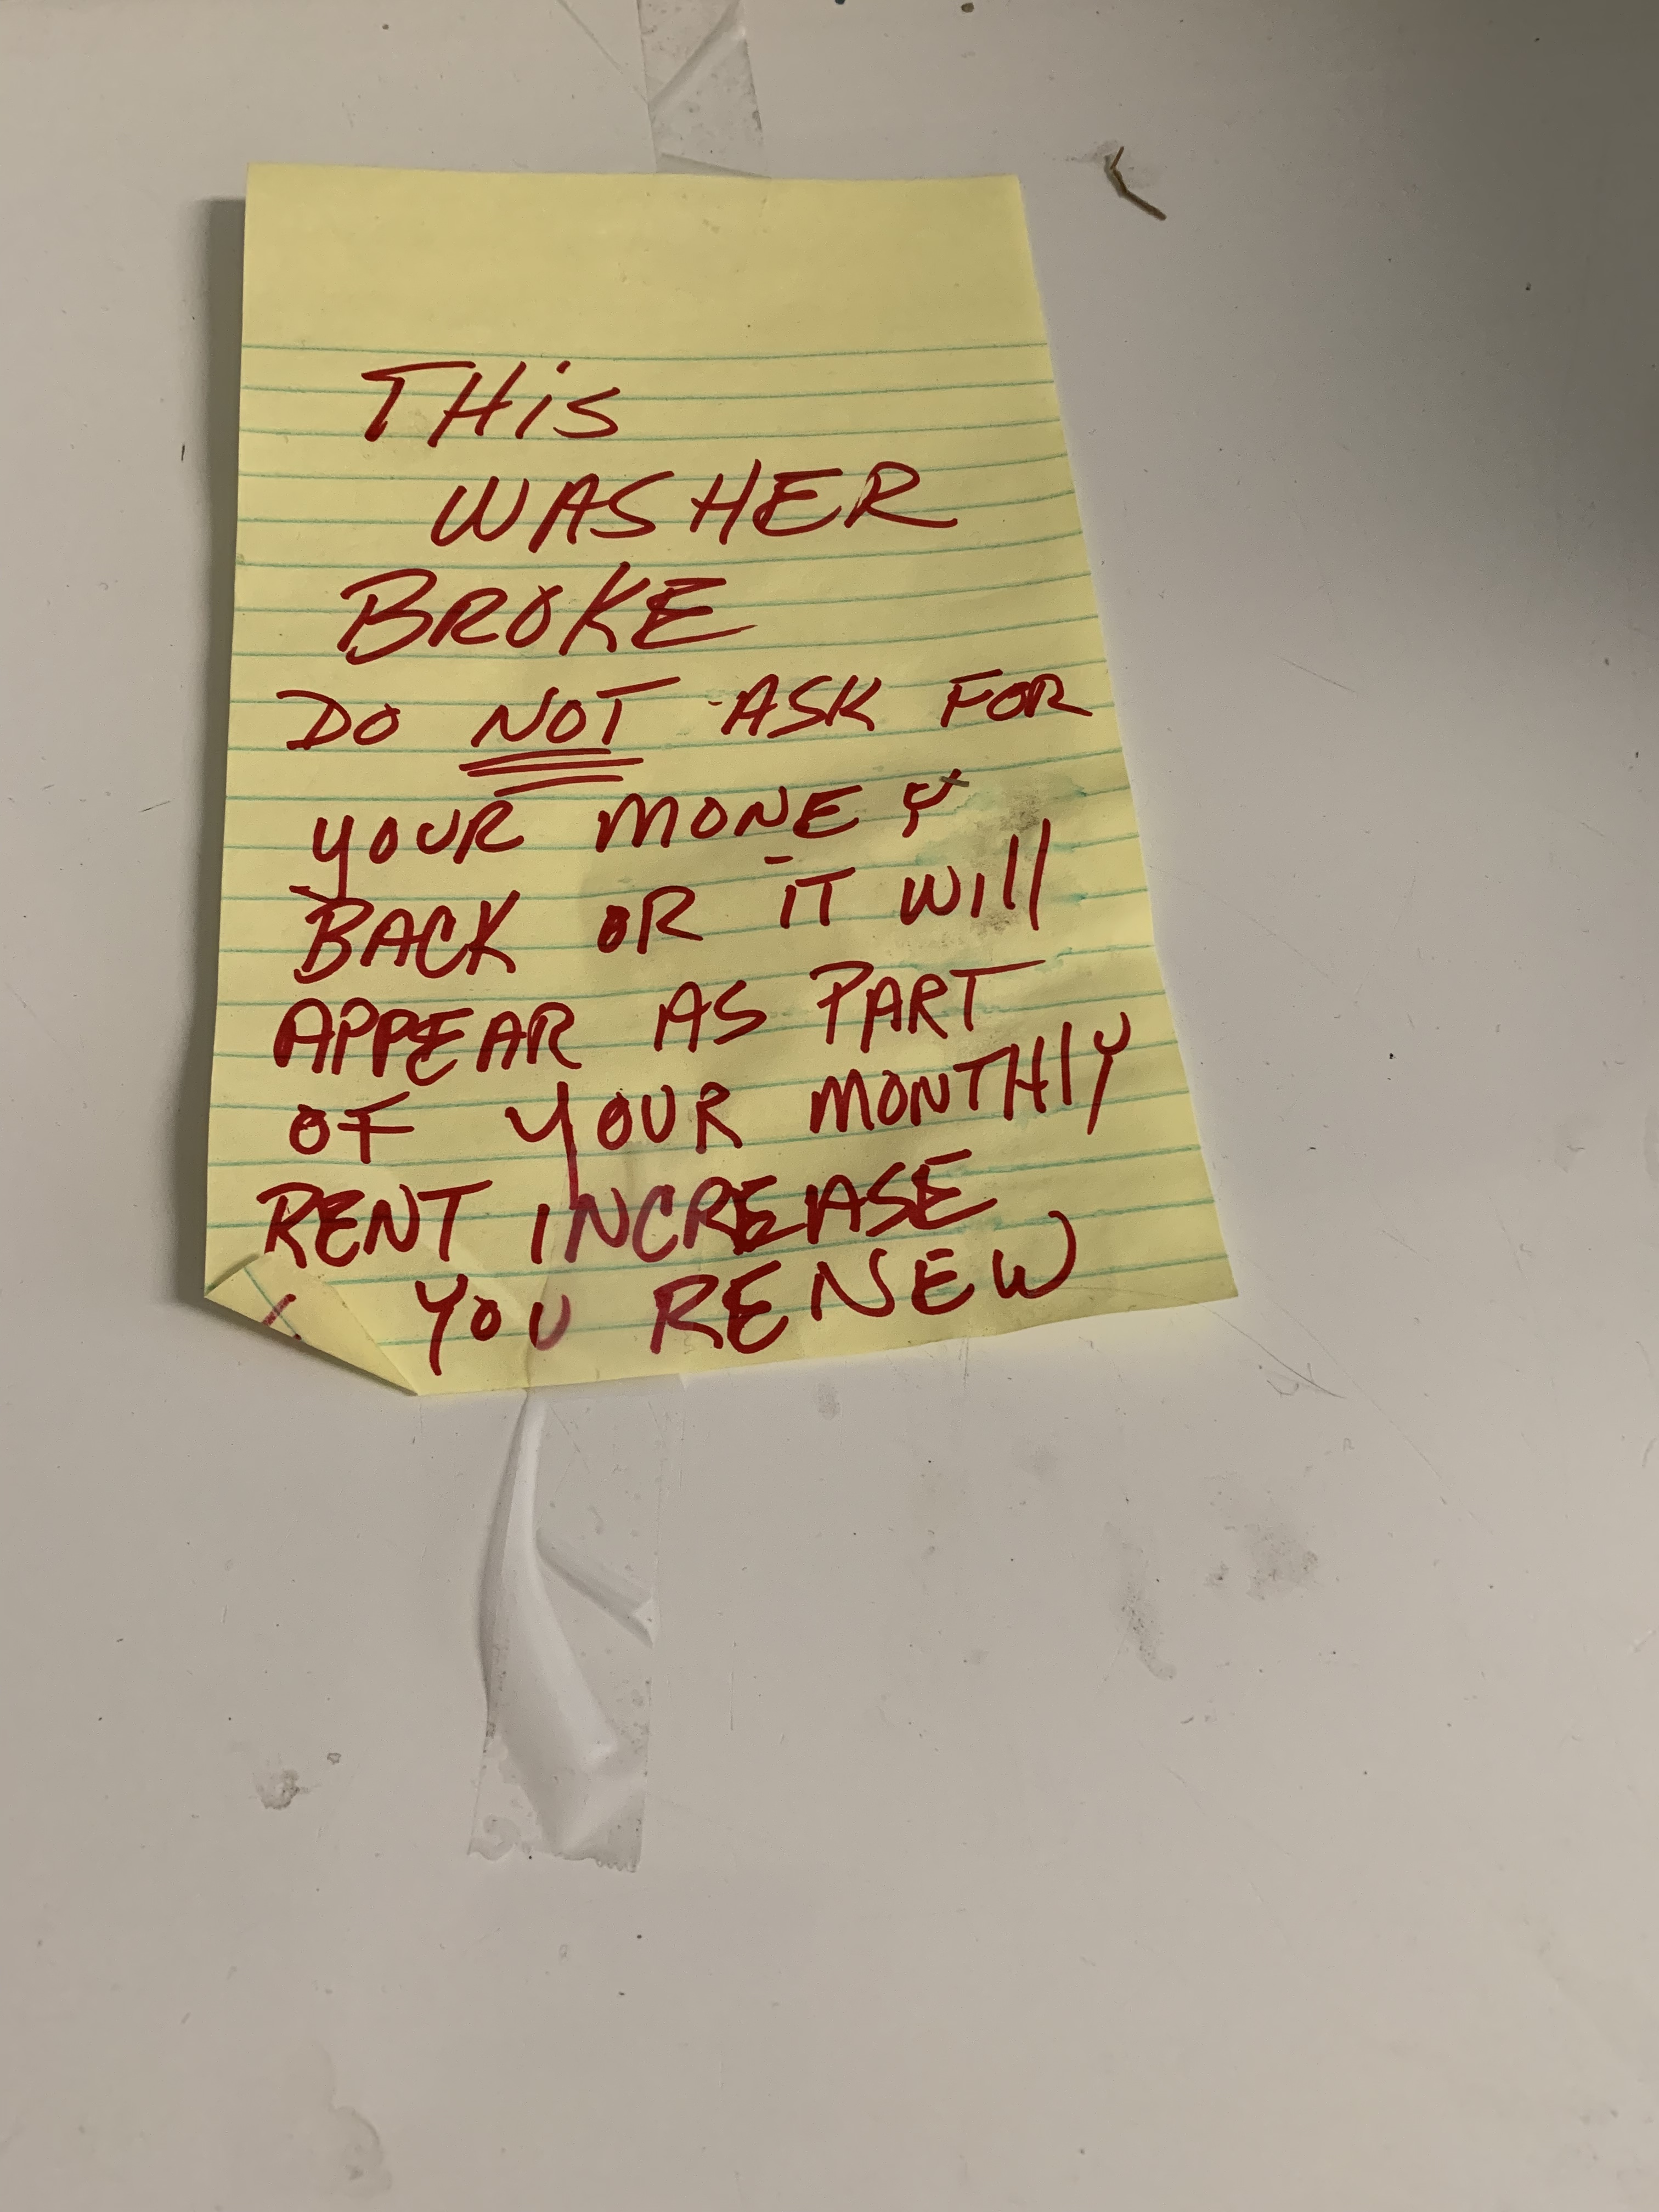 THiS
WASHER
BROKE
DO NOT ASK FOR
YOUR MONEY
BACK OR IT Will
APPEAR AS PART
OF YOUR MONTHlY
RENT INCREASE
YOU RENEW